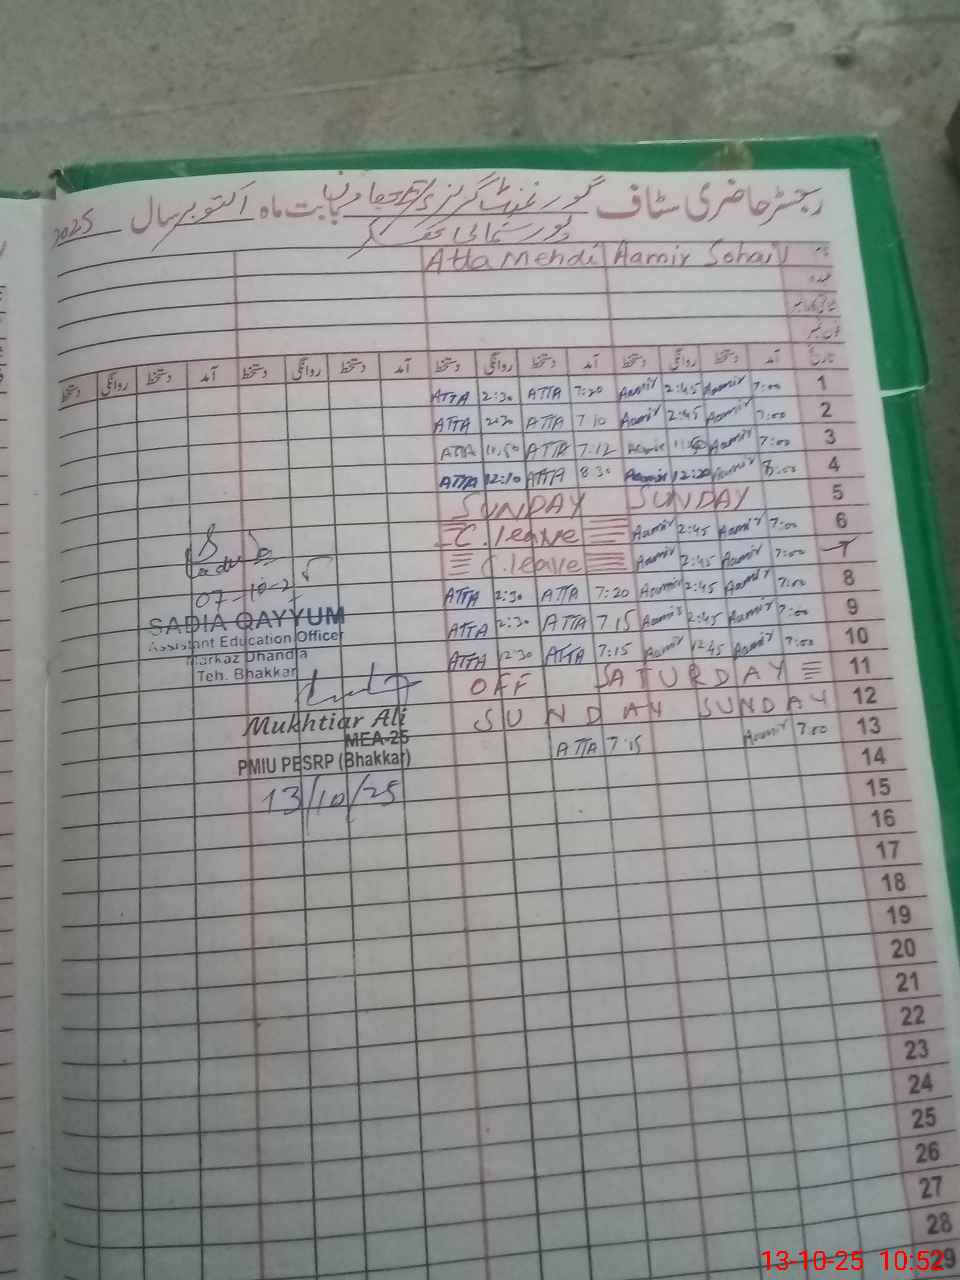 رجسٹر حاضری سٹاف گورنمنٹ گرلز بابت ماہ اکتوبر سال 2025
Atta Mehdi Aamir Sohail
تاریخ آمد دستخط روانگی دستخط آمد دستخط روانگی دستخط آمد دستخط روانگی دستخط آمد دستخط روانگی دستخط
ATTA 2:30 ATTA 7:20 Aamir 2:45 Aamir 7:00 1
ATTA 2:30 ATTA 7 10 Aamir 2:45 Aamir 7:00 2
ATTA 11,50 ATTA 7:12 Aamir Aamir 7:00 3
ATTA 12:10 ATTA 8 30 Aamir 12:20 Aamir 8:00 4
SUNDAY SUNDAY 5
C. leave Aamir 2:45 Aamir 7:00 6
C. leave Aamir 2:45 Aamir 7:00 7
ATTA 2:30 ATTA 7:20 Aamir 2:45 Aamir 7:00 8
ATTA 2:30 ATTA 7 15 Aamir 2:45 Aamir 7:00 9
ATTA 12 30 ATTA 7:15 Aamir 12:45 Aamir 7:00 10
OFF SATURDAY 11
SUNDAY SUNDAY 12
ATTA 7:15 Aamir 7:00 13
14
15
16
17
18
19
20
21
22
23
24
25
26
27
28
29
SADIA QAYYUM
Assistant Education Officer
Markaz Dhandla
Teh. Bhakkar
Mukhtiar Ali
MEA-25
PMIU PESRP (Bhakkar)
13/10/25
13-10-25 10:52